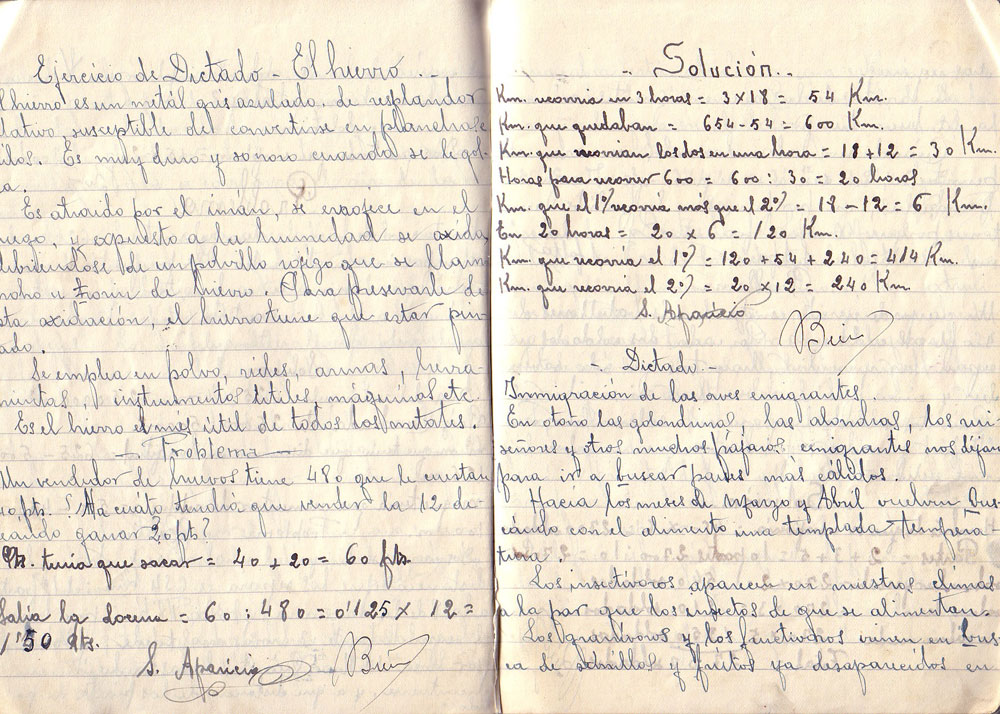 Ejercicio de Dictado - El hierro.-
l hierro es un metál gris azulado, de resplandor
lativo, susceptible del convertirse en planchas e
hilos. Es muy duro y sonoro cuando se le gol-
ea.
Es atraido por el imán, se enrojece en el
uego, y expuesto a la humedad se oxida
de un polvillo rojizo que se llam
moho u de hierro. Para preservarle de
sta oxidación, el hierro tiene que estar pin-
ado.
Se emplea en polvo, armas, herra-
mientas, instrumentos útiles, máquinas etc.
Es el hierro el más útil de todos los metales.
- Problema -
Un vendedor de huevos tiene 480 que le cuestan
40 pts. ¿A cuáto tendría que vender la 12 de-
eando ganar 20 pts?
Pts. tenia que sacar = 40 + 20 = 60 pts.
Salia la docena = 60 : 480 = 0'125 x 12 =
1'50 Pts.
S. Aparicio Bien
- Solución.-
Km. recorria en 3 horas = 3 x 18 = 54 Km.
Km. que quedaban = 654 - 54 = 600 Km.
Km. que recorrian los dos en una hora = 18 + 12 = 30 Km.
Horas para recorrer 600 = 600 : 30 = 20 horas
Km. que el 1º recorria más que el 2º = 18 - 12 = 6 Km.
En 20 horas = 20 x 6 = 120 Km.
Km. que recorria el 1º = 120 + 54 + 240 = 414 Km.
Km. que recorria el 2º = 20 x 12 = 240 Km.
S. Aparicio
Bien
- Dictado. -
Inmigración de las aves emigrantes.
En otoño las golondrinas, las alondras, los rui
señores y otros muchos pájaros emigrantes nos dejan
para ir a buscar paises más cálidos.
Hacia los meses de Marzo y Abril vuelven bus
cándo con el alimento una templada tempera-
tura.
Los insectivoros aparecen en nuestros climas
a la par que los insectos de que se alimentan.
Los granívoros y los fructivoros vienen en bus
ca de semillas y frutos ya desaparecidos en